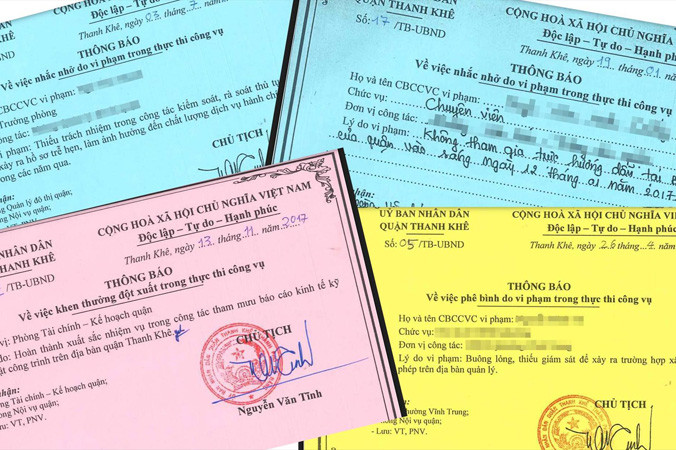 CỘNG HOÀ XÃ HỘI CHỦ NGHĨA
Độc lập – Tự do – Hạnh
Thanh Khê, ngày 03 tháng 7 năm
THÔNG BÁO
Về việc nhắc nhở do vi phạm trong thực thi công vụ
CBCCVC vi phạm:
Trưởng phòng
công tác:
vi phạm: Thiếu trách nhiệm trong công tác kiểm soát, rà soát thủ tục
xảy ra hồ sơ trễ hẹn, làm ảnh hưởng đến chất lượng dịch vụ hành chính
ong các năm qua.
CHỦ TỊCH
ng Quản lý đô thị quận;
ng Nội vụ quận;
PNV.
QUẬN THANH KHÊ
Số: 17 /TB-UBND
CỘNG HOÀ XÃ HỘI CHỦ NGHĨA
Độc lập – Tự do – Hạnh phúc
Thanh Khê, ngày 19 tháng 01 năm
THÔNG BÁO
Về việc nhắc nhở do vi phạm trong thực thi công vụ
Họ và tên CBCCVC vi phạm:
Chức vụ: Chuyên viên
Đơn vị công tác:
Lý do vi phạm: Không tham gia trực hướng dẫn tại
của quận vào sáng ngày 12 tháng 01 năm 2017
CỘNG HOÀ XÃ HỘI CHỦ NGHĨA VIỆT NAM
Độc lập – Tự do – Hạnh phúc
NHÂN DÂN
THANH KHÊ
/TB-UBND
Thanh Khê, ngày 13 tháng 11 năm 2017
THÔNG BÁO
Về việc khen thưởng đột xuất trong thực thi công vụ
vị: Phòng Tài chính – Kế hoạch quận
do: Hoàn thành xuất sắc nhiệm vụ trong công tác tham mưu báo cáo kinh tế kỹ
ật công trình trên địa bàn quận Thanh Khê.
CHỦ TỊCH
nhận:
ng Tài chính – Kế hoạch quận;
òng Nội vụ quận;
Lưu: VT, PNV.
Nguyễn Văn Tĩnh
UỶ BAN NHÂN DÂN
QUẬN THANH KHÊ
Số: 05 /TB-UBND
CỘNG HOÀ XÃ HỘI CHỦ NGHĨA
Độc lập – Tự do – Hạnh phúc
Thanh Khê, ngày 26 tháng 4 năm
THÔNG BÁO
Về việc phê bình do vi phạm trong thực thi công vụ
Họ và tên CBCCVC vi phạm:
Chức vụ:
Đơn vị công tác:
Lý do vi phạm: Buông lỏng, thiếu giám sát để xảy ra trường hợp
phép trên địa bàn quản lý.
CHỦ TỊCH
nhận:
phường Vĩnh Trung;
òng Nội vụ quận;
- Lưu: VT, PNV.